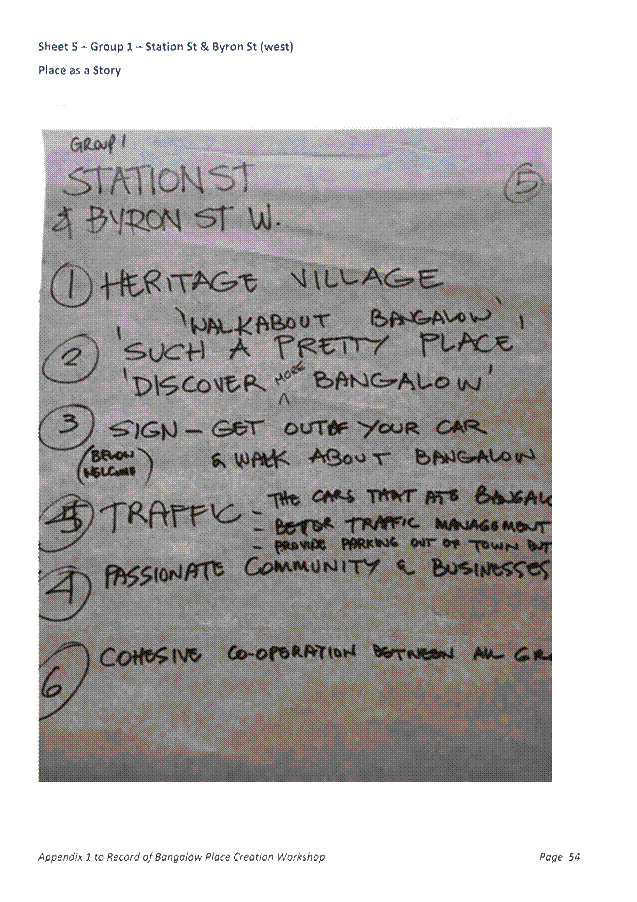 Sheet 5 – Group 1 – Station St & Byron St (west)
Place as a Story
GROUP 1
STATION ST
& BYRON ST W.
5
1 HERITAGE VILLAGE
'WALKABOUT BANGALOW'
2 'SUCH A PRETTY PLACE'
'DISCOVER MORE BANGALOW'
3 SIGN – GET OUT OF YOUR CAR
(BELOW WELCOME) & WALK ABOUT BANGALOW
5 TRAFFIC – THE CARS THAT ATE BANGAL
– BETTER TRAFFIC MANAGEMENT
– PROVIDE PARKING OUT OF TOWN BUT
4 PASSIONATE COMMUNITY & BUSINESSES
6 COHESIVE CO-OPERATION BETWEEN ALL GR
Appendix 1 to Record of Bangalow Place Creation Workshop
Page 54